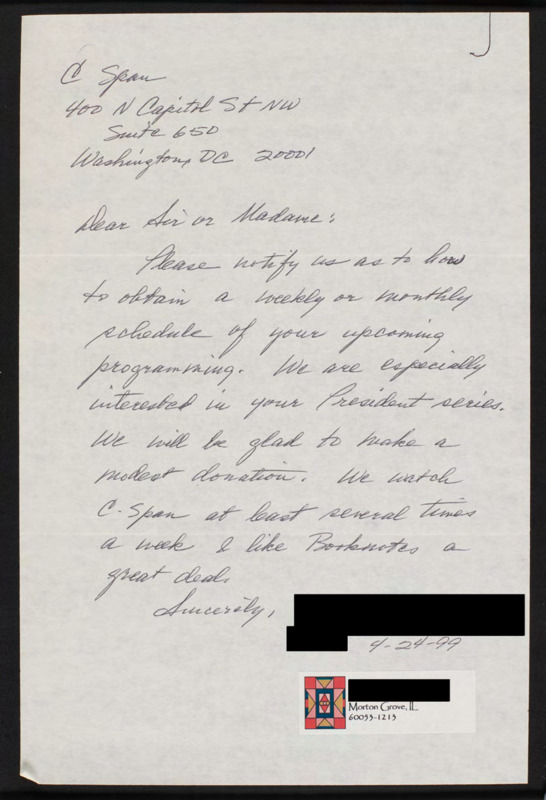 C Span
400 N Capitol St NW
Suite 650
Washington, DC 20001
Dear Sir or Madame:
Please notify us as to how
to obtain a weekly or monthly
schedule of your upcoming
programming. We are especially
interested in your President series.
We will be glad to make a
modest donation. We watch
C-Span at least several times
a week & like Booknotes a
great deal.
Sincerely,
4-24-99
Morton Grove, IL
60053-1213